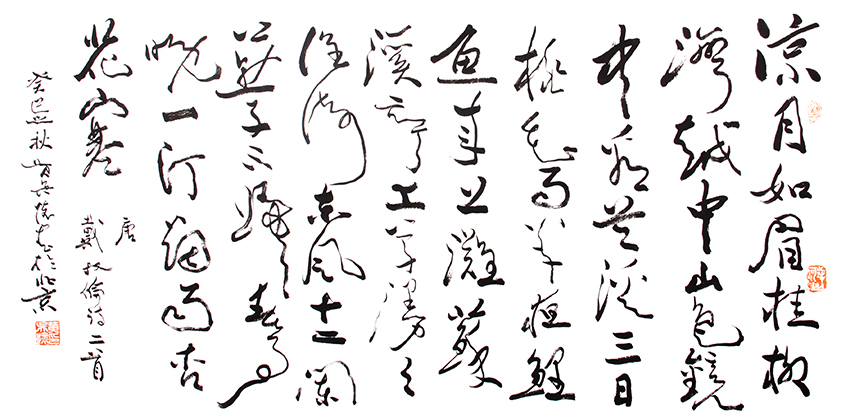 凉月如眉桂柳
湾越中山色镜
中看兰溪三日
桃花雨半夜鲤
鱼来上滩苏
溪亭上草漫々
谁倚东风十二阑
燕子不归春事
晚一汀烟雨杏
花寒
唐
戴叔倫诗二首
癸巳之秋 北京